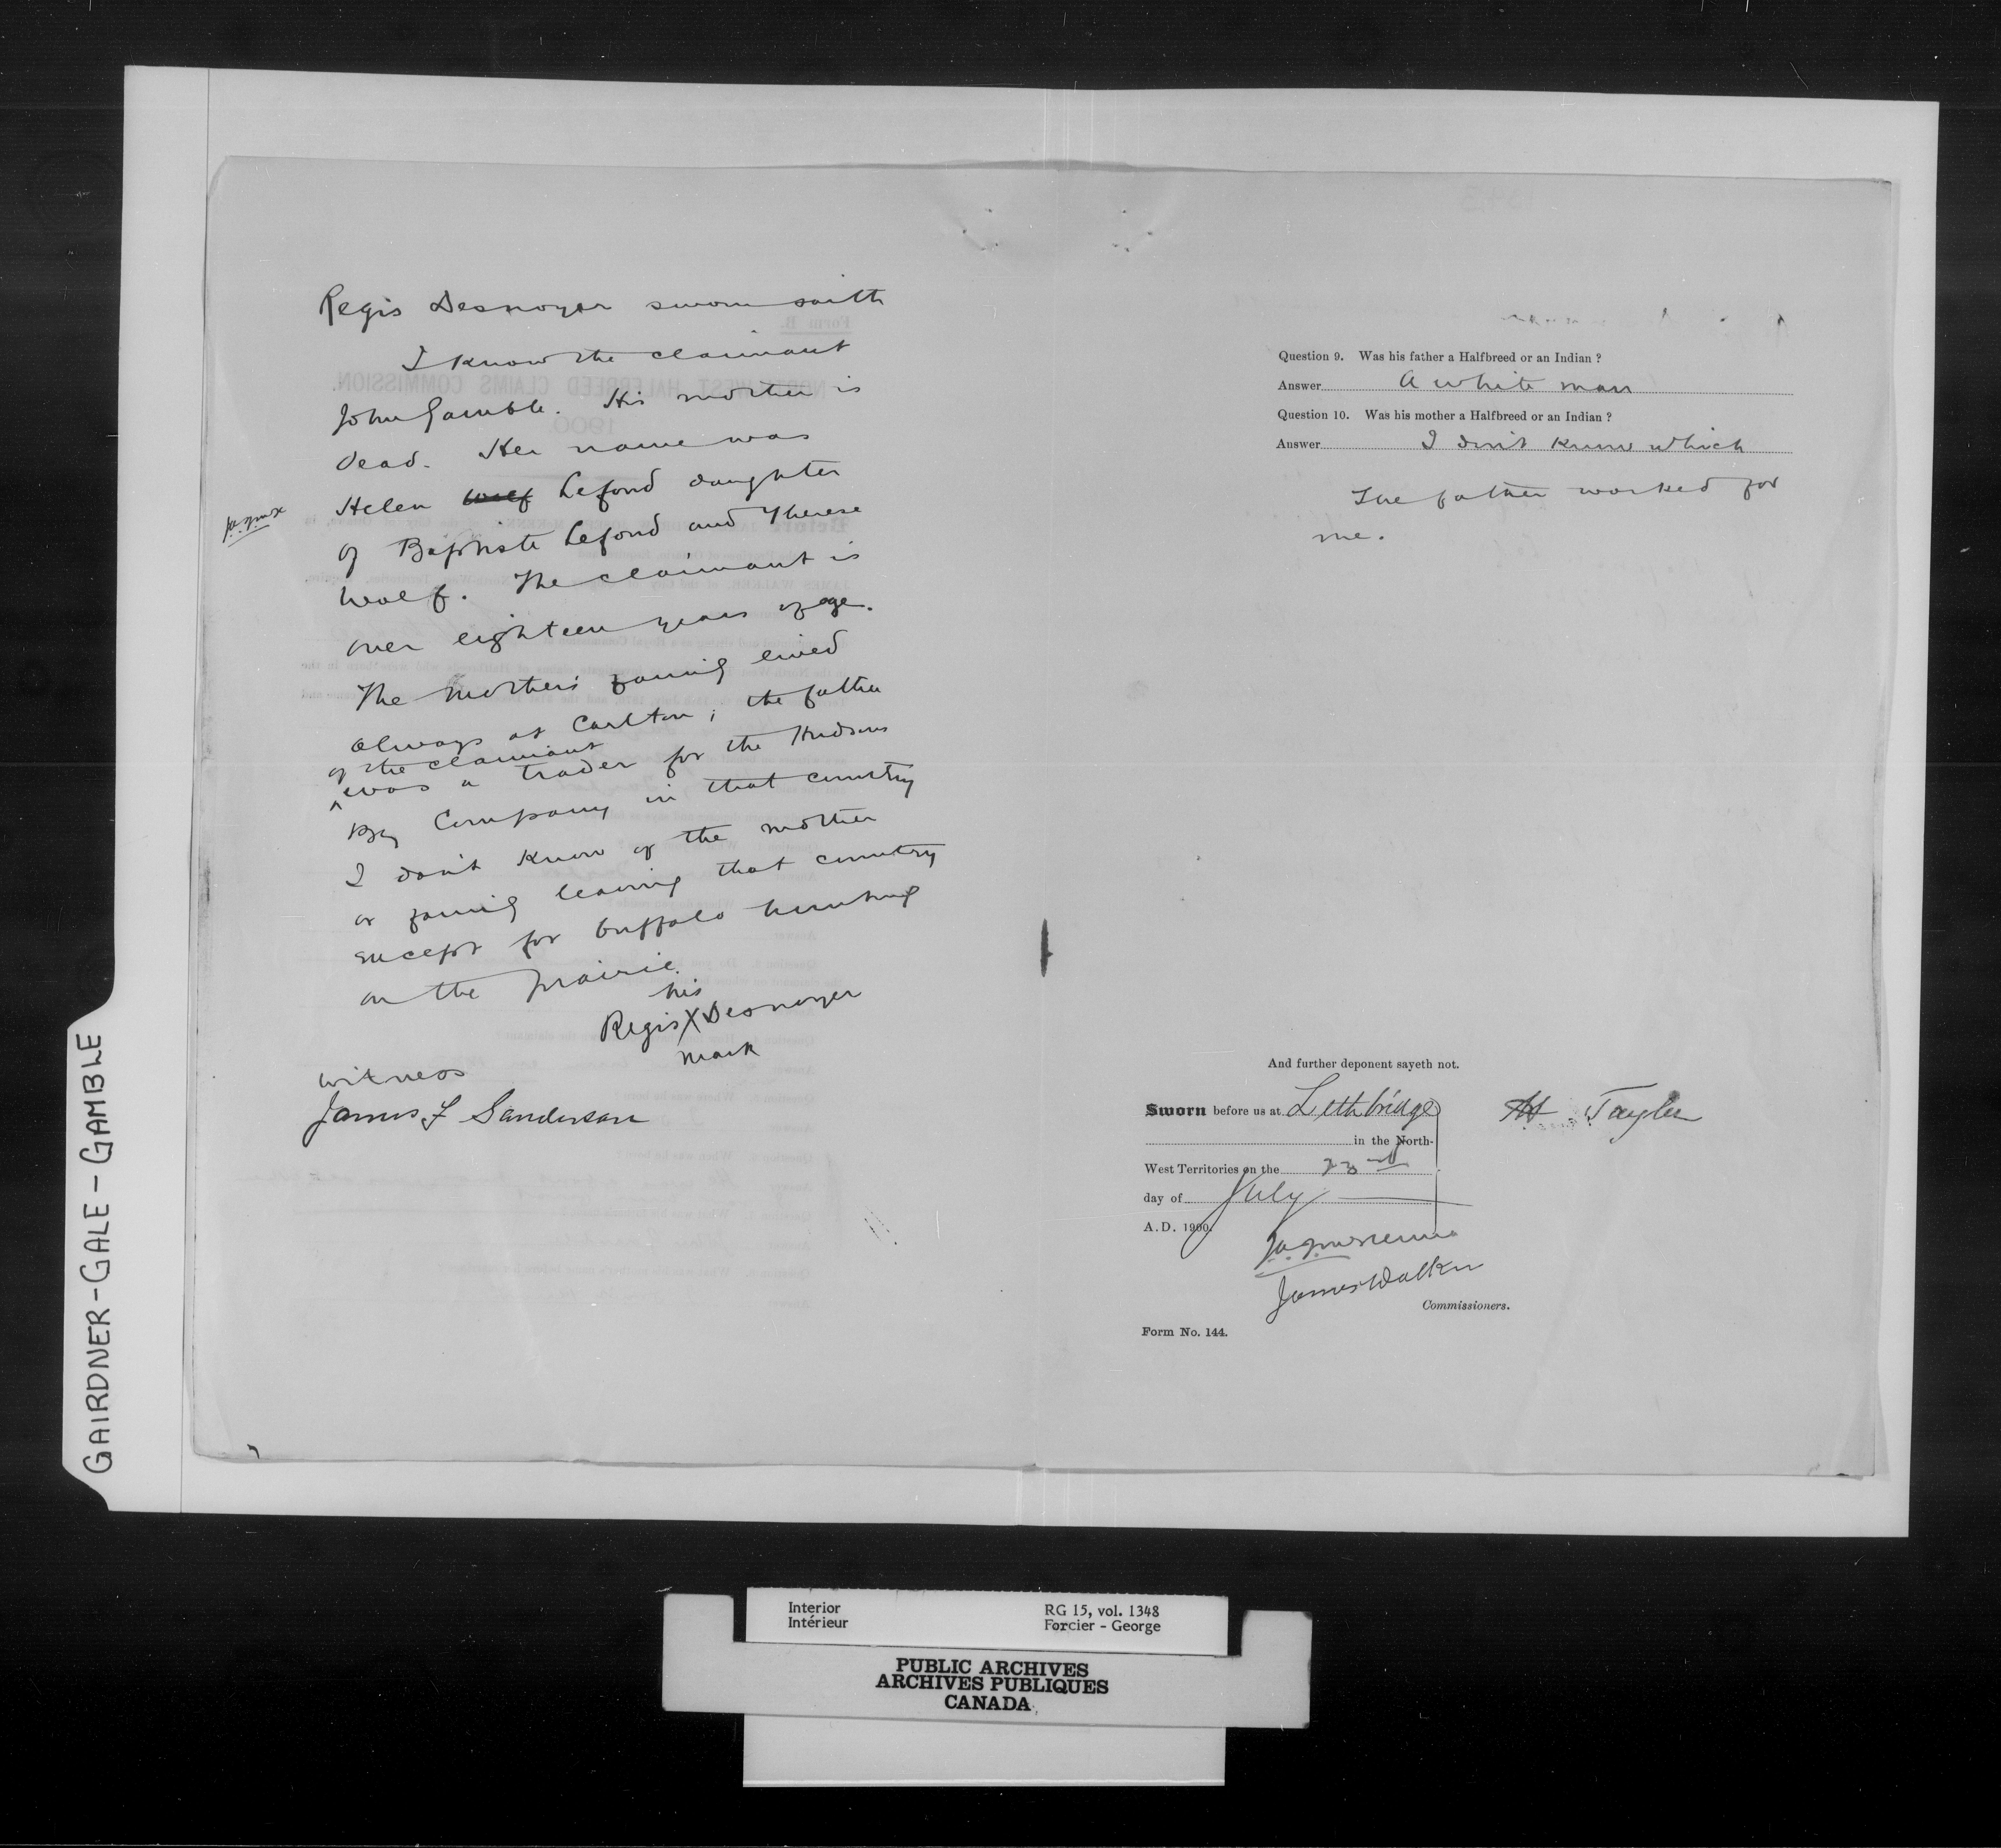 Regis Desnoyer sworn saith
I know the claimant
John Gamble. His mother is
dead. Her name was
Helen Wolf Lefond daughter
of Baptiste Lefond and Therese
Wolf. The claimant is
over eighteen years of age.
The mother's family lived
always at Carlton; the father
of the claimant
^ was a trader for the Hudsons
Bay Company in that country
I don't know of the mother
or family leaving that country
except for buffalo hunting
on the prairie.
his
Regis X Desnoyer
mark
witness
James F Sanderson
Question 9. Was his father a Halfbreed or an Indian ?
Answer A white man
Question 10. Was his mother a Halfbreed or an Indian ?
Answer I don't know which
The father worked for
me.
And further deponent sayeth not.
Sworn before us at Lethbridge
in the North-
West Territories on the 23rd
day of July
A.D. 1900.
Taylor
James Walker
Commissioners.
Form No. 144.
GAIRDNER-GALE-GAMBLE
Interior
Intérieur
RG 15, vol. 1348
Forcier - George
PUBLIC ARCHIVES
ARCHIVES PUBLIQUES
CANADA